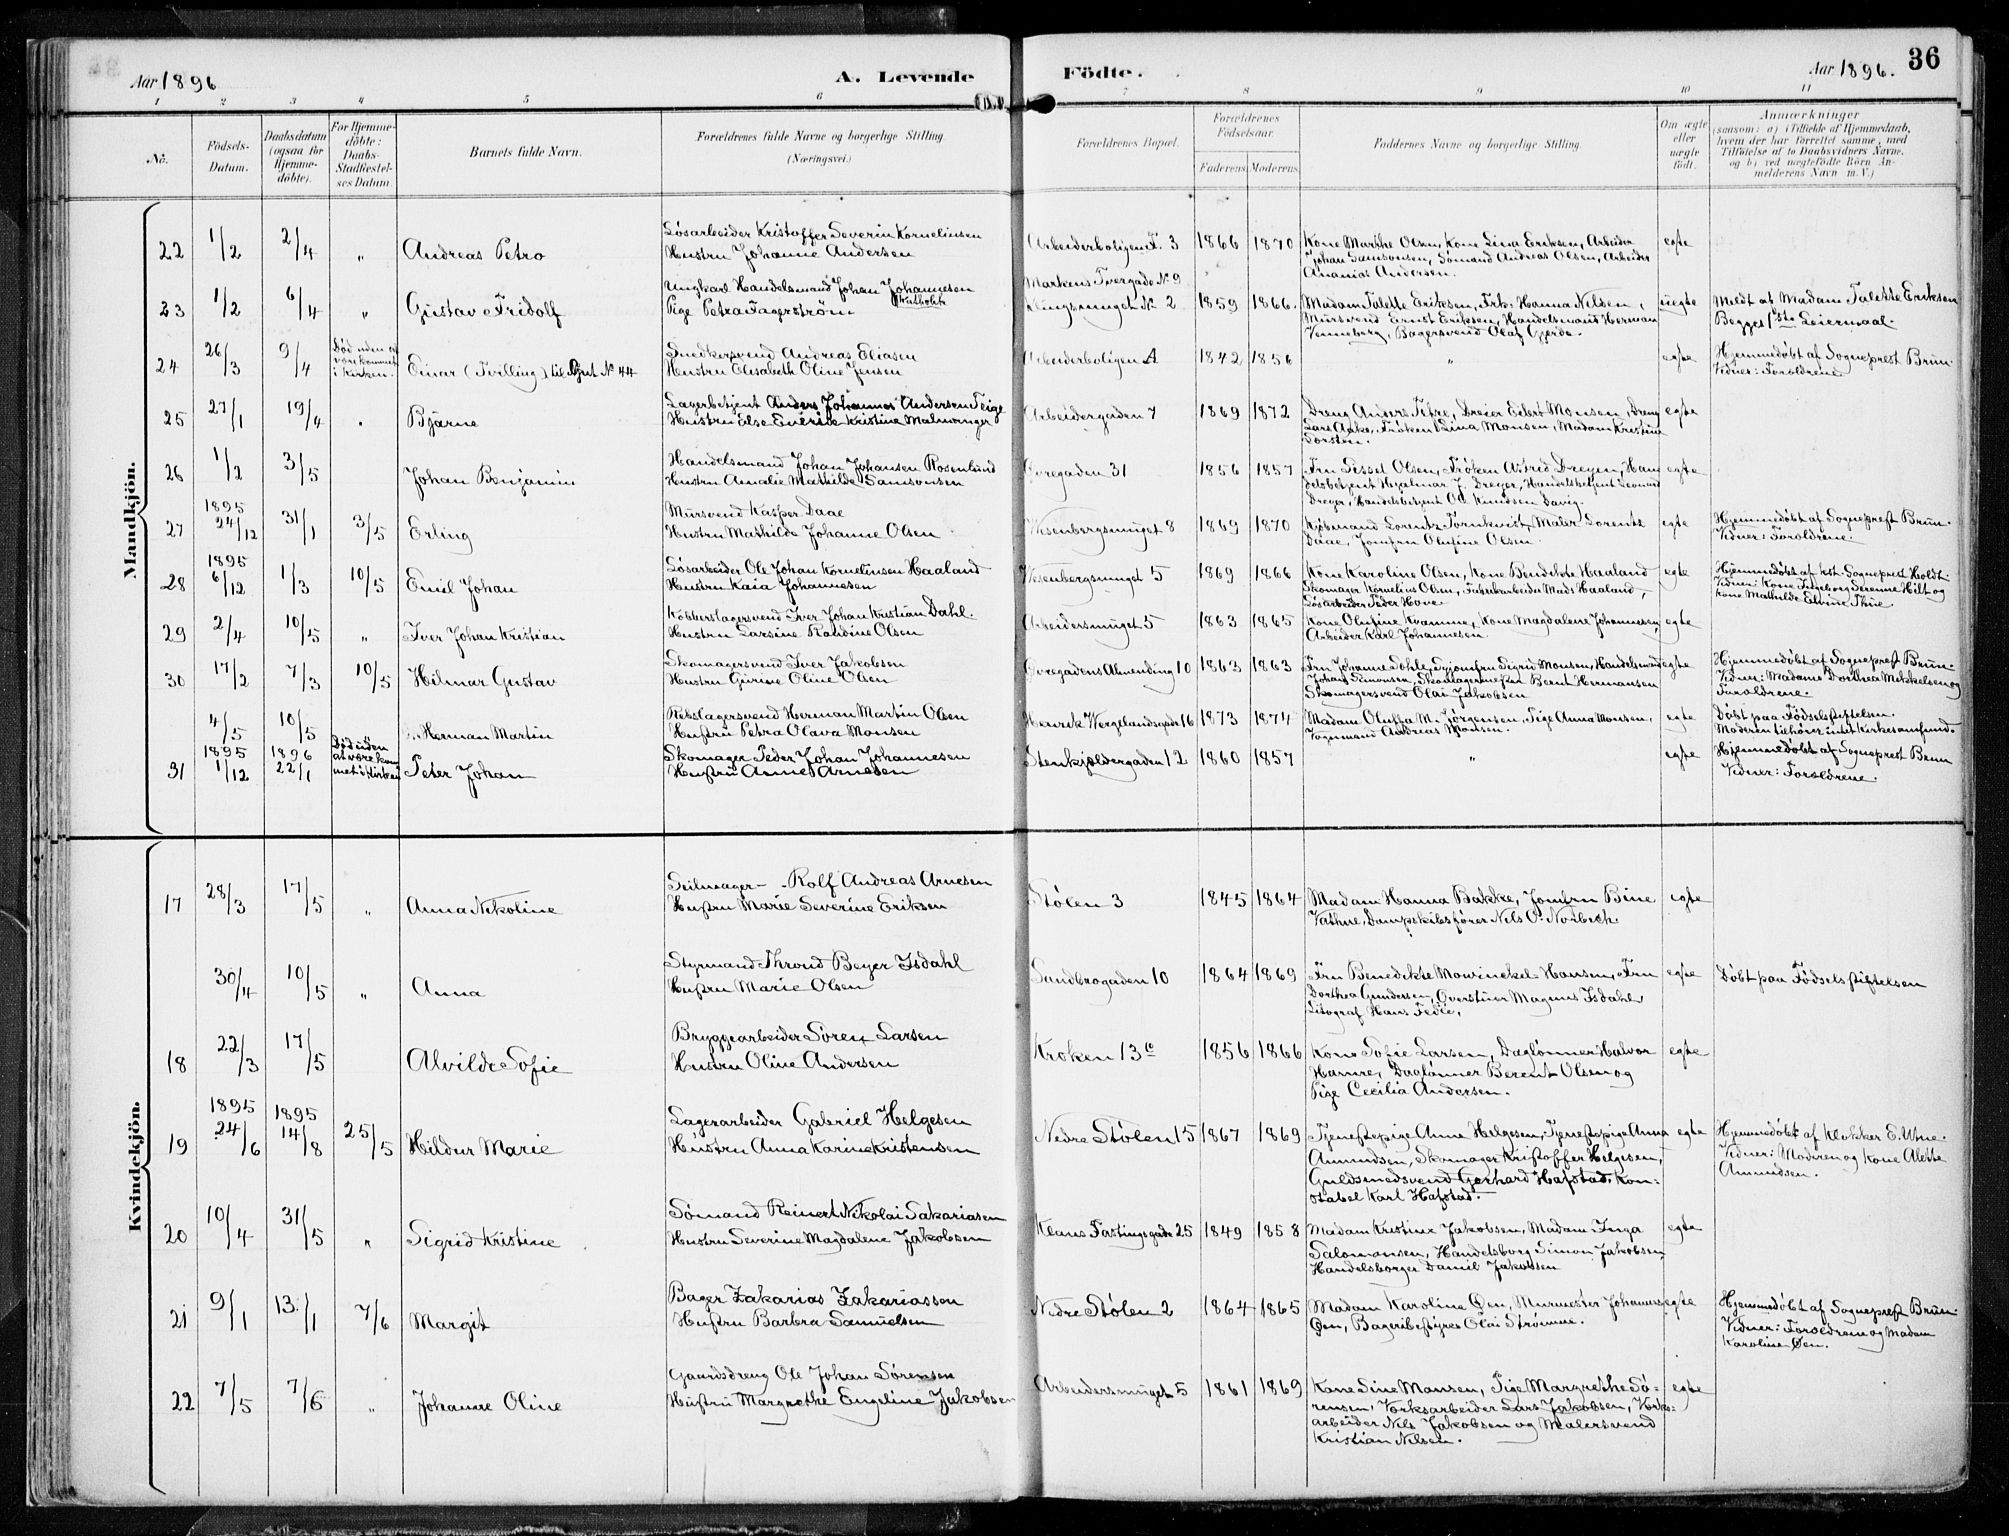 Aar 1896
A. Levende Födte.
Aar 1896. 36
1 2 3 4 5 6 7 8 9 10 11
No.
Födsels-Datum.
Daabsdatum (ogsaa for Hjemme-döbte).
For Hjemme-döbte: Daabs-Stadfæstel-ses Datum
Barnets fulde Navn.
Forældrenes fulde Navne og borgerlige Stilling.
(Næringsvei.)
Forældrenes Bopæl.
Forældrenes Födselsaar.
Faderens Moderens
Faddernes Navne og borgerlige Stilling.
Om ægte eller uægte födt.
Anmærkninger
(saasom: a) i Tilfælde af Hjemmedaab,
hvem der har forrettet samme, med
Tilföielse af to Daabsvidners Navne.
og b) ved uægtefödte Börn An-
melderens Navn m. V.)
Mandkjön.
22 1/2 2/4 " Andreas Petro
Løsarbeider Kristoffer Severin Kornelinsen
Hustru Johanne Andersen
Arbeiderboligen F. 3 1866 1870
Kone Marthe Olsen, Kone Lina Eriksen, Arbeider
Johan Samsonsen, Sømand Andreas Olsen, Arbeider
Ananias Andersen.
egte
23 1/2 6/4 " Gustav Fridolf
Ungkarl Handelsmand Johan Johannesen
Pige Petra Fagerstrøm
Markens Tvergade No 9
No 2 1859 1866.
Madam Talette Eriksen, Frk. Hanna Nilsen,
Mursvend Ernst Eriksen, Handelsmand Herman
Venneberg, Bagersvend Olaf Gjerde.
uegte
Meldt af Madam Talette Eriksen
Begges 1ste Leiermaal.
24 26/3 9/4
Død uden at
være kommet
i kirken.
Einar (Tvilling) til No 44
Snedkersvend Andreas Eliasen
Hustru Elisabeth Oline Jensen
Arbeiderboligen A 1842 1856 " egte
Hjemmedøbt af Sogneprest Brun.
Vidner: Forældrene
25 27/1 19/4 " Bjarne
Lagerbetjent Anders Johannes Andersen Teige
Hustru Else Kristine Malmanger
Arbeidergaden 7 1869 1872
Dreng Anders Petre, Dreier Eilert Monsen, Dreng
Lars Aake, Frøken Lina Monsen, Madam Kristine
Torsten.
egte
26 1/2 3/5 Johan Benjamin
Handelsmand Johan Johansen Rosenlund
Hustru Amalie Mathilde Samsonsen
Øvregaden 31 1856 1857
Fru Sissel Olsen, Frøken Astrid Dreyer, Han-
delsbetjent Hjalmar J. Dreyer, Handelsbetjent Leonard
Dreyer, Handelsbetjent Ole Knudsen
egte
27 1895 24/12 31/1 3/5 Erling
Mursvend Kasper Daae
Hustru Mathilde Johanne Olsen
Wesenbergsmuget 8 1869 1870
Kjøbmand Lorentz Tornkvist, Maler Lorentz
Daae, Jomfru Olufine Olsen
egte
Hjemmedøbt af Sogneprest Brun.
Vidner: Forældrene.
28 1895 6/12 1/3 10/5 Emil Johan
Løsarbeider Ole Johan Kornelinsen Haaland
Hustru Kaia Johannesen
Wesenbergsmuget 5 1869 1866
Kone Karoline Olsen, Kone Bendikte Haaland
Skomager Kornelius Olsen, Fabrikarbeider Mads Haaland,
Løsarbeider Peder Hove
egte
Hjemmedøbt af kst. Sogneprest Holdt.
Vidner: Kone Ingeborg Serene Hilt og
Kone Mathilde Elvine Thue.
29 2/4 10/5 " Iver Johan Kristian
Kobberslagersvend Iver Johan Kristian Dahl.
Hustru Larsine Randine Olsen
Arbeidersmuget 5 1863 1865
Kone Olufine Kvamme, Kone Magdalene Johannesen,
Arbeider Karl Johannesen
egte
30 17/2 7/3 10/5 Hilmar Gustav
Skomagersvend Iver Jakobsen
Hustru Gurine Oline Olsen
Øvregadens Almending 10 1863 1863
Fru Johanne Sohle, Syjomfru Sigrid Monsen, Handelsmand
Johan Simonsen, Skomagermester Bernt Hermansen
Skomagersvend Olai Jakobsen
egte
Hjemmedøbt af Sogneprest Brun.
Vidner: Madame Dorthea Mikkelsen og
Forældrene.
4/5 10/5 Herman Martin
Rebslagersvend Herman Martin Olsen
Hustru Petra Olava Monsen
Henrik Wergelandsgade 16 1873 1874
Madam Oluffa M. Jørgensen, Pige Anna Monsen,
Vognmand Andreas Monsen.
egte
Døbt paa Fødselsstiftelsen.
Moderen tilhører intet Kirkesamfund.
31 1895 1/12 1896 22/1
Død uden
at være kom-
met i kirken
Peter Johan
Skomager Peder Johan Johannesen
Hustru Anne Arnesen
Stenkjeldergaden 12 1860 1857 " egte
Hjemmedøbt af Sogneprest Brun
Vidner: Forældrene.
Kvindekjön.
17 28/3 17/5 " Anna Nikoline
Seilmager Rolf Andreas Arnesen
Hustru Marie Severine Eriksen
Stølen 3 1845 1864
Madam Hanna Bakke, Jomfru Bine
Vathne, Dampskibsfører Nils O. Norbech.
egte
30/4 10/5 " Anna
Styrmand Thrond Beyer Isdahl
Hustru Marie Olsen
Sandbrogaden 10 1864 1869
Fru Benedikte Mowinckel Hansen, Fru
Dorthea Gundersen, Magnus Isdahl,
Litograf Hans Fedie,
egte
Døbt paa Fødselsstiftelsen
18 22/3 17/5 Alvilde Sofie
Bryggearbeider Søren Larsen
Hustru Oline Andersen
Kroken 13c 1856 1866
Kone Sofie Larsen, Daglønner Halvor
Hamre, Daglønner Berent Olsen og
Pige Cecilia Andersen.
egte
19 1895 24/6 1895 14/8 25/5 Hildur Marie
Lagerarbeider Gabriel Helgesen
Hustru Anna Karine Kristensen
Nedre Stølen 15 1867 1869
Tjenestepige Anna Helgesen, Tjenestepige Anna
Amundsen, Skomager Kristoffer Helgesen,
Guldsmedsvend Gerhard Hafstad, Kon-
stabel Karl Hafstad.
egte
Hjemmedøbt af Klokker E. Utne.
Vidner: Moderen og Kone Alette
Amundsen.
20 10/4 31/5 " Sigrid Kristine
Sømand Reinert Nikolai Sakariasen
Hustru Severine Magdalene Jakobsen
Klaus Fastingsgade 25 1849 1858
Madam Kristine Jakobsen, Madam Inga
Salomonsen, Handelsborg Simon Jakobsen,
Handelsborger Daniel Jakobsen
egte
21 9/1 13/1 7/6 Margit
Bager Zakarias Zakariassen
Hustru Barbra Samuelsen
Nedre Stølen 2 1864 1865
Madam Karoline Øen, Murmester Johannes
Øen, Bageribestyrer Olai Strømme.
egte
Hjemmedøbt af Sogneprest Brun.
Vidner: Forældrene og Madam
Karoline Øen.
22 7/5 7/6 " Johanne Oline
Gaardsdreng Ole Johan Sørensen
Hustru Margrethe Engeline Jakobsen
Arbeidersmuget 5 1861 1869
Kone Sine Mansen, Pige Margrethe Sø-
rensen, Verksarbeider Lars Jakobsen, Verks-
arbeider Nils Jakobsen og Malersvend
Kristian Nilsen.
egte